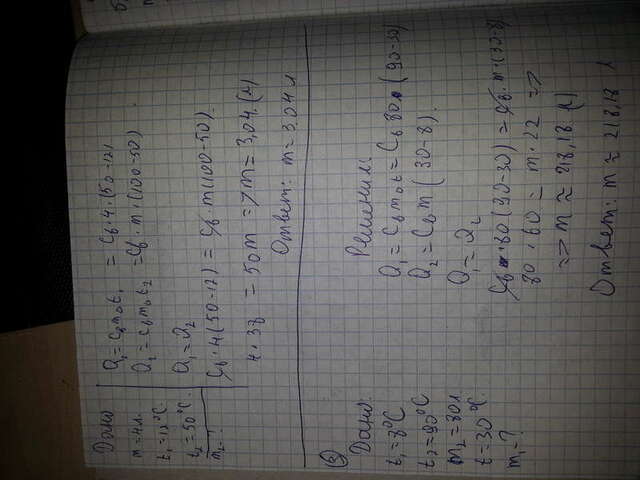 Дано
m = 4 л.
t₁ = 12 °C
t₂ = 50 °C.
m₂ - ?
Q₁ = Cв m₀ t₁ = Cв · 4 · (50-12)
Q₁ = Cв m₀ t₂ = Cв · m · (100-50)
Q₁ = Q₂
Cв · 4 (50-12) = Cв · m (100-50).
4 · 38 = 50 m => m = 3,04 (л)
Ответ: m = 3,04 л
Дано:
t₁ = 8 °C
t₂ = 90 °C
m₂ = 80 л
t = 30 °C.
m - ?
Решение:
Q₁ = Cв m₀ t = Cв 80 (90-30)
Q₂ = Cв m (30-8).
Q₁ = Q₂
Cв · 80 (90-30) = Cв · m · (30-8)
80 · 60 = m · 22 =>
=> m ≈ 218,18 (л)
Ответ: m ≈ 218,18 л